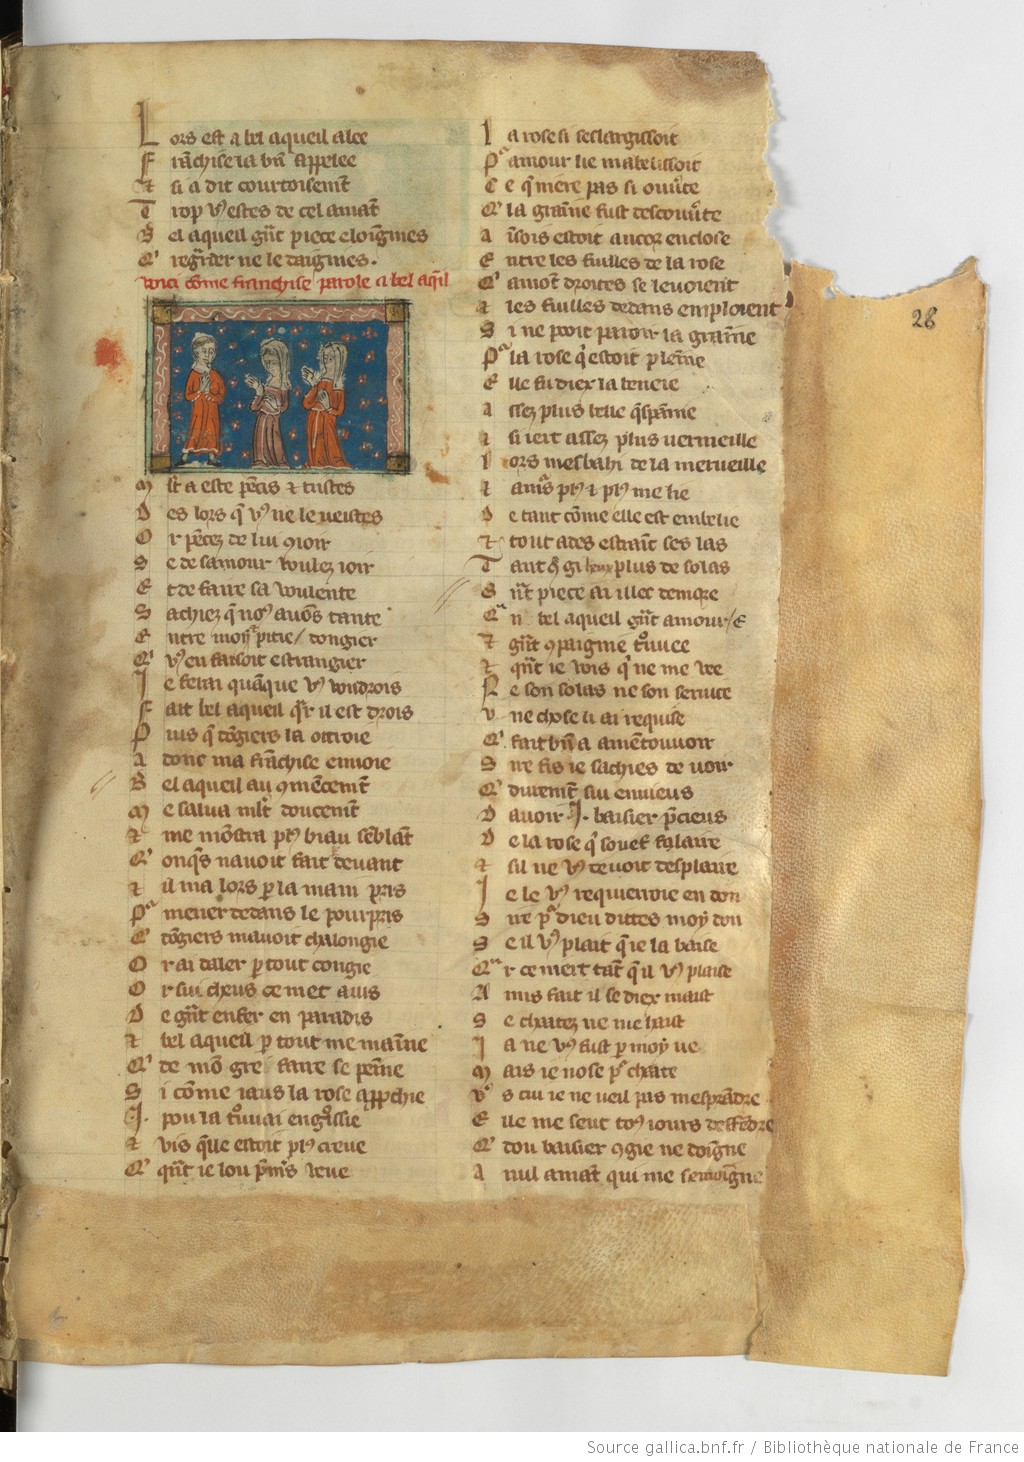 Lors est a bel aqueil alee
Franchise la bn̄ appelee
⁊ si a dit courtoisem̄t
Trop vꝰ estes de cel amāt
Bel aqueil gn̄t piece eloīgnies
Qͥ regarder ne le daignies.
voici cōme franchise parole a bel aq̄il
Mlt a este pēcis ⁊ tristes
Des lors q̄ vꝰ ne le veistes
Or pēcez de lui ꝯioir
Se de samour voulez ioir
Et de faire sa voulente
Sachiez q̄ noꝰ auōs tante
Entre moy ⁊ pitie / dongier
Qͥ vꝰ en faisoit estrangier
Je ferai quāque vꝰ voudrois
Fait bel aqueil qͣr il est drois
Puis q̄ dōgiers la ottroie
Adonc ma frāchise enuoie
Bel aqueil au ꝯmēcem̄t
Me salua mlt doucem̄t
⁊ me mōstra plꝰ biau sēblāt
Qͥ onq̄s nauoit fait deuant
⁊ il ma lors ꝑ la main pris
Pͣ mener dedans le pourpris
Qͥ dōgiers mauoit chalongie
Or ai daler ꝑ tout congie
Or sui cheus ce met auis
De gn̄t enfer en paradis
⁊ bel aqueil ꝑ tout me maīne
Qͥ de mō gre faire se peīne
Si cōme iaus la rose app̄chie
.I. pou la tͦuuai engͦssie
⁊ vis q̄le estoit plꝰ creue
Qͥ qn̄t ie lou p̄m̄s veue
La rose si seslargissoit
Pͣ amour lie mabelissoit
Ce q̄ mere pas si ouūte
Qͥ la graīne fust descouūte
Aīsois estoit ancor enclose
Entre les fuilles de la rose
Qͥ amōt droites se leuoient
⁊ les fuilles dedans emploient
Si ne pooit paroir la graīne
Pͣ la rose qͥ estoit pleīne
Elle fu diex la beneie
Assez plus belle q̄ spānie
⁊ si iert assez plus vermeille
Lors mesbahi de la merueille
⁊ amͬs plꝰ ⁊ plꝰ me lie
De tant cōme elle est embelie
⁊ tout ades estraīt ses las
Tant q̄ gi plus de solas
Gn̄t piece ai illec demore
Qͣn bel aqueil gn̄t amour / e
⁊ gn̄t ꝯpaignie tͦuuee
⁊ qn̄t ie vois q̄ ne me vee
Ne son solas ne son seruice
Vne chose li ai requise
Qͥ fait bn̄ a amēteuoir
Sire fis ie sachies de voir
Qͥ durem̄t sui enuieus
Dauoir .I. baisier p̄cieus
De la rose qͥ souef flaire
⁊ sil ne vꝰ deuoit desplaire
Je le vꝰ requieroie en don
Sire pͣ dieu dittes moy don
Se il vꝰ plait q̄ ie la baise
Qͣr ce niert tāt q̄ il vꝰ plaise
Amis fait il se diex maist
Se chatez ne me haist
Ja ne vꝰ fust ꝑ moy vee
Mais ie nose pͣ chate
Vͬs cui ie ne veil pas mesprādre
Elle me seut toꝰ iours deffēdre
Qͥ dou baisier ꝯgie ne doīgne
A nul amāt qui me semoigne
28
Source gallica.bnf.fr / Bibliothèque nationale de France